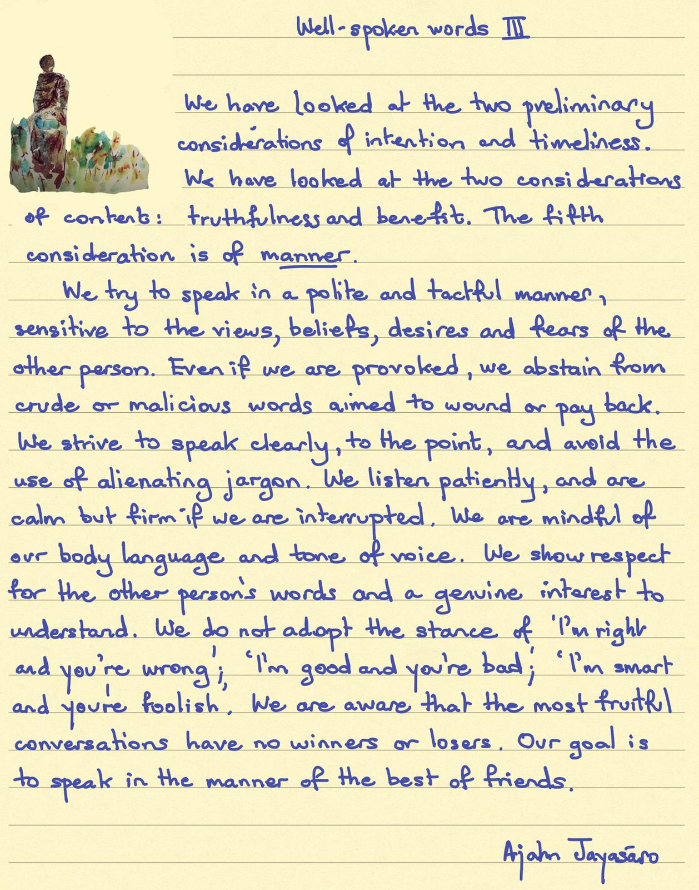 Well-spoken words III
We have looked at the two preliminary
considerations of intention and timeliness.
We have looked at the two considerations
of content: truthfulness and benefit. The fifth
consideration is of manner.
We try to speak in a polite and tactful manner,
sensitive to the views, beliefs, desires and fears of the
other person. Even if we are provoked, we abstain from
crude or malicious words aimed to wound or pay back.
We strive to speak clearly, to the point, and avoid the
use of alienating jargon. We listen patiently, and are
calm but firm if we are interrupted. We are mindful of
our body language and tone of voice. We show respect
for the other person's words and a genuine interest to
understand. We do not adopt the stance of 'I'm right
and you're wrong'; 'I'm good and you're bad'; 'I'm smart
and you're foolish'. We are aware that the most fruitful
conversations have no winners or losers. Our goal is
to speak in the manner of the best of friends.
Ajahn Jayasāro